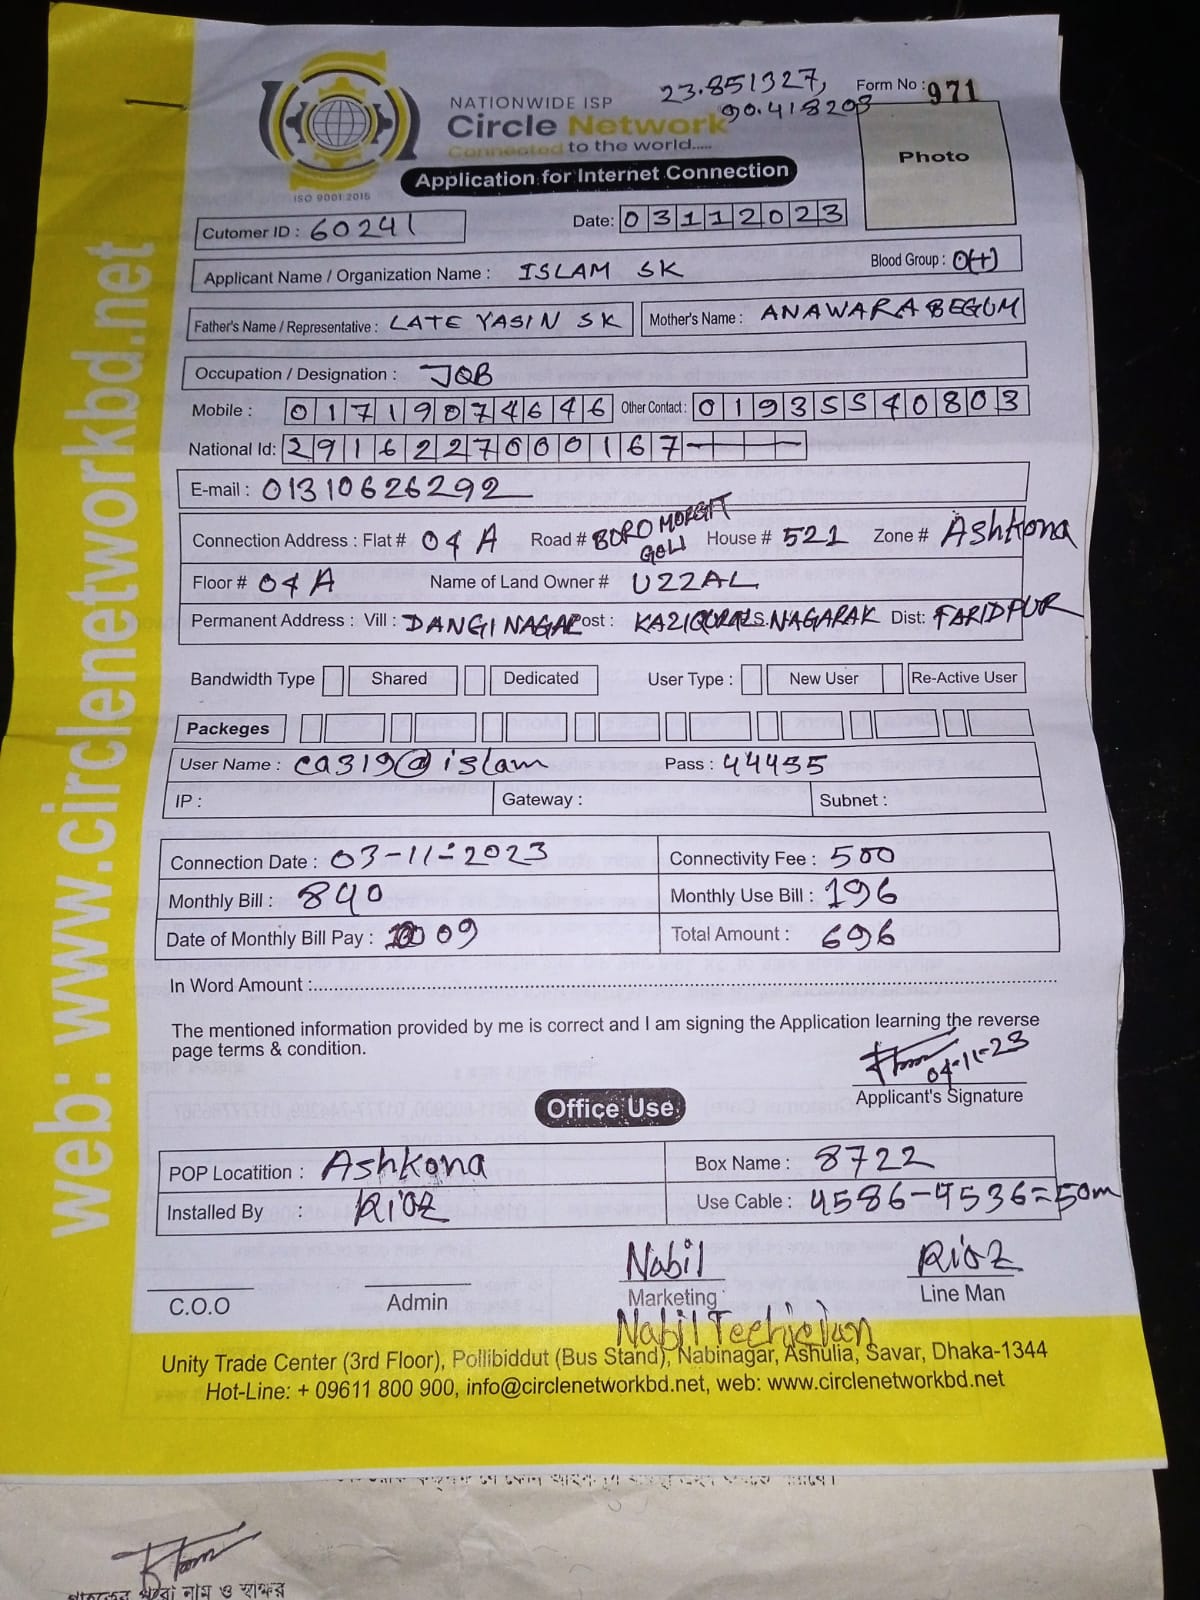 23.851327,
90.418203
Form No : 971
NATIONWIDE ISP
Circle Network
Connected to the world.....
ISO 9001:2015
Photo
Application for Internet Connection
Cutomer ID : 60241
Date: 03112023
Applicant Name / Organization Name : ISLAM SK Blood Group : O(+)
Father's Name / Representative : LATE YASIN SK Mother's Name : ANAWARA BEGUM
Occupation / Designation : JOB
Mobile : 01719074646 Other Contact : 01935540803
National Id: 2916227000167
E-mail : 01310626292
Connection Address : Flat # 04 A Road # BORO MORGIT GOLI House # 521 Zone # Ashkona
Floor # 04 A Name of Land Owner # UZZAL
Permanent Address : Vill : DANGINAGAR Post : S. NAGARAK Dist: FARIDPUR
Bandwidth Type Shared Dedicated User Type : New User Re-Active User
Packeges
User Name : ca319@islam Pass : 44455
IP : Gateway : Subnet :
Connection Date : 03-11-2023 Connectivity Fee : 500
Monthly Bill : 840 Monthly Use Bill : 196
Date of Monthly Bill Pay : 09 Total Amount : 696
In Word Amount :
The mentioned information provided by me is correct and I am signing the Application learning the reverse
page terms & condition.
04-11-23
Applicant's Signature
Office Use
POP Locatition : Ashkona Box Name : 8722
Installed By : Riaz Use Cable : 4586-4536=50m
Nabil Riaz
C.O.O Admin Marketing Line Man
Nabil Techician
Unity Trade Center (3rd Floor), Pollibiddut (Bus Stand), Nabinagar, Ashulia, Savar, Dhaka-1344
Hot-Line: + 09611 800 900, info@circlenetworkbd.net, web: www.circlenetworkbd.net
web: www.circlenetworkbd.net
নাম ও স্বাক্ষর